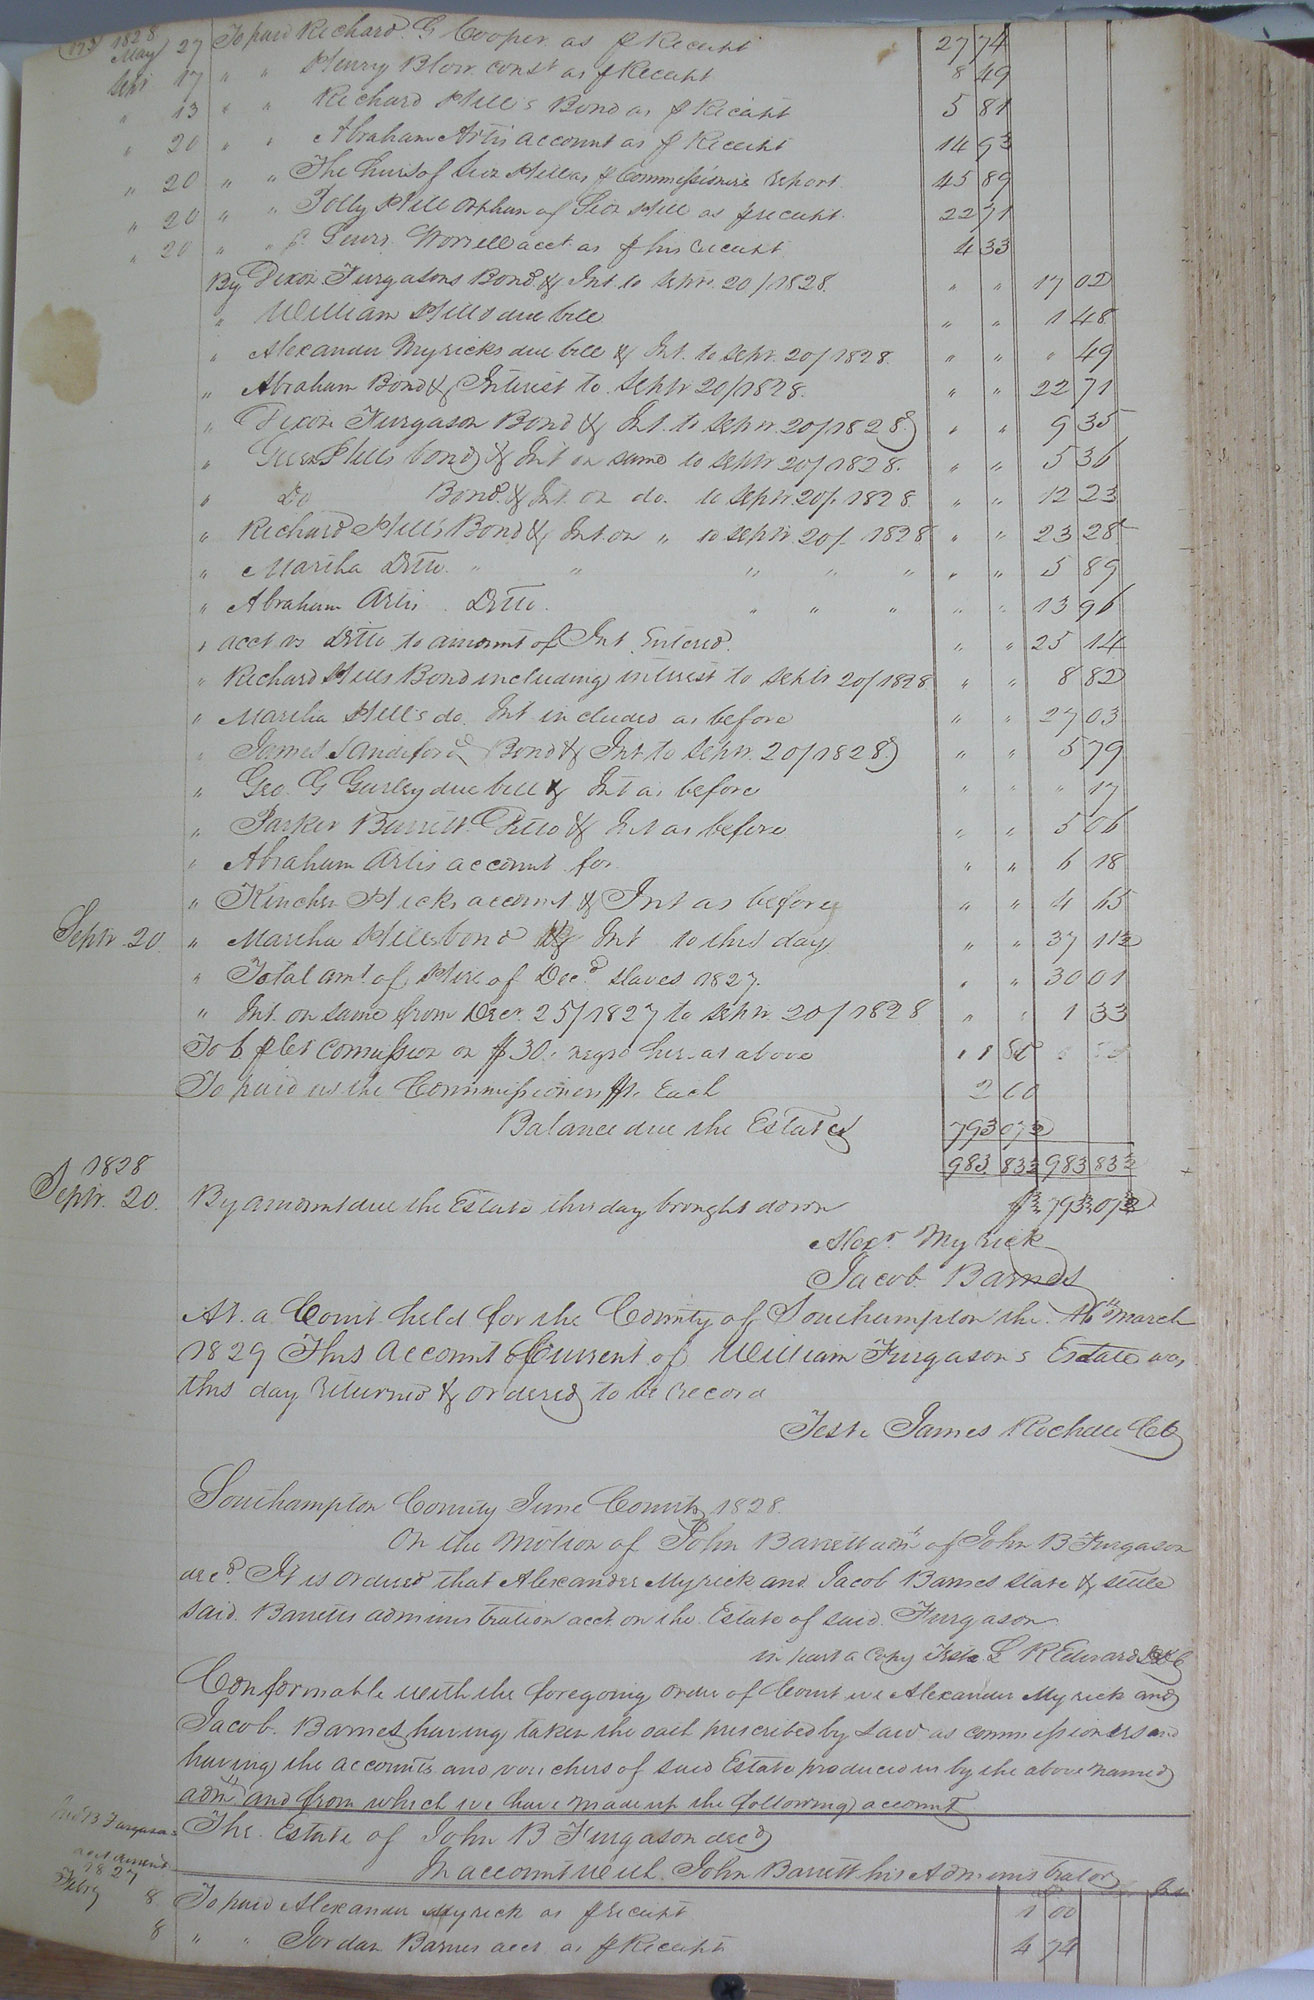 173 1828
May 27 To paid Richard G Cooper as pr Receipt 27 74
Sept 17 " " Henry Blow const as pr Receipt 8 49
" 13 " " Richard Hill's Bond as pr Receipt 5 81
" 20 " " Abraham Artis account as pr Receipt 14 93
" 20 " " The heirs of Geo Hill as pr Commissioners report 45 89
" 20 " " Polly Hill Orphan of Geo Hill as pr receipt 22 71
" 20 " " Lewis Worrell acct as pr his receipt 4 33
By Dixon Furgasons Bond & Int to Septr 20/1828 " " 17 02
" William Hills due bill " " 1 48
" Alexander Myricks due bill & Int. to Septr 20/1828 " " " 49
" Abraham Bond & Interest to Septr 20/1828. " " 22 71
" Dixon Furgason Bond & Int. to Septr 20/1828 " " 9 35
" Green Hills bond & Int on same to Septr 20/1828. " " 5 36
" Do Bond & Int. on do to Septr 20/ 1828 " " 12 23
" Richard Hills Bond & Int on " to Septr 20/ 1828 " " 23 28
" Martha Ditto " " " " " " " 5 89
" Abraham Artis Ditto. " " " " " 13 96
" acct vs Ditto to amount of Int Entered " " 25 14
" Richard Hills Bond including interest to Septr 20/1828 " " 8 82
" Martha Hill's do. Int included as before " " 27 03
" James Sandeford Bond & Int to Septr 20/1828 " " 5 79
" Geo. G Gurley due bill & Int as before " " " 17
" Parker Barrett Ditto & Int as before " " 5 06
" Abraham Artis account for " " 6 18
" Kinchen Hicks account & Int as before " " 4 65
Septr 20 " Martha Hills bond & Int to this day " " 37 11½
" Total amt of Hire of Decd slaves 1827. " " 30 01
" Int. on same from Decr 25/1827 to Septr 20/1828 " " 1 33
To 6 pr Ct Commission on $30. negro hire as above " 1 80
To paid us the Commissioners $1. Each 2 00
Balance due the Estate 793 07½
983 83½ 983 83½
1828
Septr. 20. By amount due the Estate this day brought down $793 07½
Alexr Myrick
Jacob Barnes
At a Court held for the County of Southampton the 16th March
1829 This Account Current of William Furgason's Estate was
this day returned & ordered to be record
Teste James Rochelle CC
Southampton County June Court 1828
On the motion of John Barrett adm of John B Furgason
decd It is ordered that Alexander Myrick and Jacob Barnes state & settle
said Barretts administration acct on the Estate of said Furgason
in part a Copy Teste L R Edwards DC
Conformable with the foregoing order of Court we Alexander Myrick and
Jacob Barnes having taken the oath prescribed by Law as commissioners and
having the accounts and vouchers of said Estate produced us by the above named
adm and from which we have made up the following account
Jno B Furgasons acct Current
The Estate of John B Furgason decd
In account with John Barrett his Administrator
1827
Feby 8 To paid Alexander Myrick as pr receipt 1 00
8 " " Jordan Barnes acct as pr Receipt 4 74